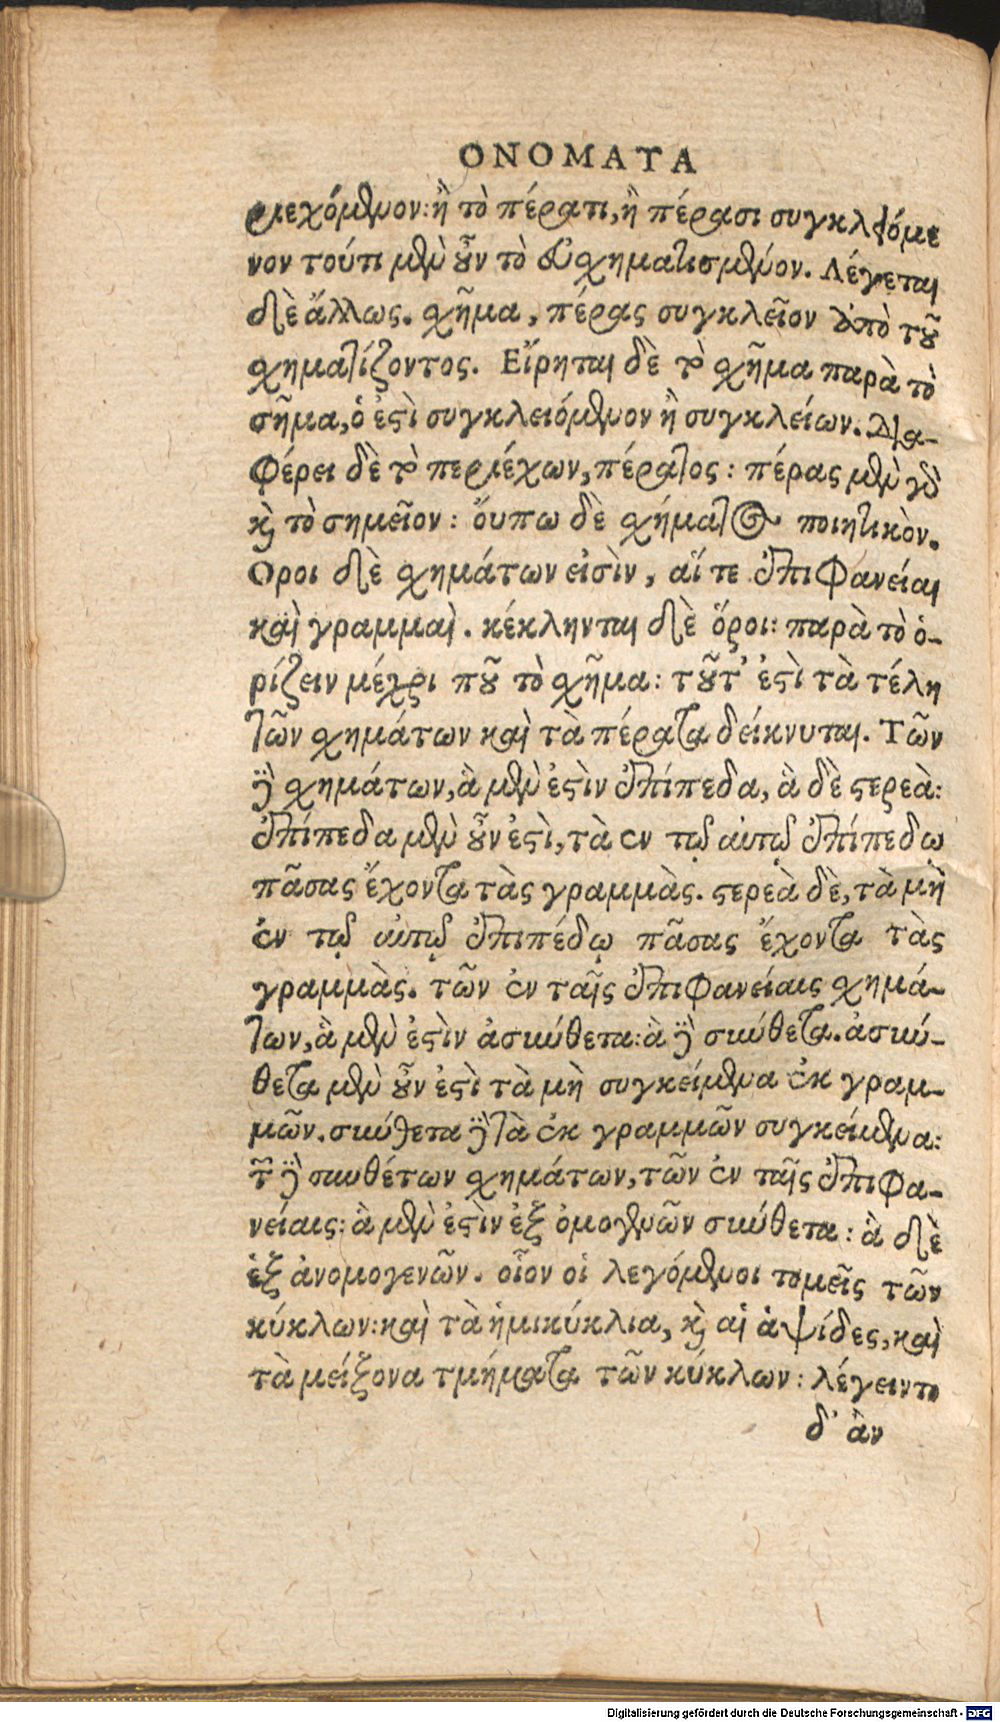 ΟΝΟΜΑΤΑ
ριεχόμενον: ἢ τὸ πέρατι, ἢ πέρασι συγκλειόμε
νον τούτι μὲν οὖν τὸ ἐσχηματισμένον. Λέγεται
δὲ ἄλλως. σχῆμα, πέρας συγκλεῖον ἀπὸ τοῦ
σχηματίζοντος. Εἴρηται δὲ τὸ σχῆμα παρὰ τὸ
σῆμα, ὁ ἐστὶ συγκλειόμενον ἢ συγκλείων. Δια-
φέρει δὲ τὸ περιέχων, πέρατος: πέρας μὲν γὰρ
καὶ τὸ σημεῖον: ὄυπω δὲ σχήματος ποιητικὸν.
Οροι δὲ σχημάτων εἰσὶν, αἵ τε ἐπιφανείαι
καὶ γραμμαὶ. κέκληνται δὲ ὅροι: παρὰ τὸ ὁ-
ρίζειν μέχρι ποῦ τὸ σχῆμα: τοῦτ' ἐστὶ τὰ τέλη
τῶν σχημάτων καὶ τὰ πέρατα δείκνυται. Τῶν
δὲ σχημάτων, ἃ μὲν ἐστὶν ἐπίπεδα, ἃ δὲ στερεὰ:
ἐπίπεδα μὲν οὖν ἐστὶ, τὰ ἐν τῷ αὐτῷ ἐπίπεδῳ
πᾶσας ἔχοντα τὰς γραμμὰς. στερεὰ δὲ, τὰ μὴ
ἐν τῷ αὐτῷ ἐπιπέδῳ πᾶσας ἔχοντα τὰς
γραμμὰς. τῶν ἐν ταῖς ἐπιφανείαις σχημά-
των, ἃ μὲν ἐστὶν ἀσύνθετα: ἃ δὲ σύνθετα. ἀσύν-
θετα μὲν οὖν ἐστὶ τὰ μὴ συγκείμενα ἐκ γραμ-
μῶν. σύνθετα δὲ τὰ ἐκ γραμμῶν συγκείμενα:
τῶν δὲ συνθέτων σχημάτων, τῶν ἐν ταῖς ἐπιφα-
νείαις: ἃ μὲν ἐστὶν ἐξ ὁμογενῶν σύνθετα: ἃ δὲ
ἐξ ἀνομογενῶν. οἷον οἱ λεγόμενοι τομεῖς τῶν
κύκλων: καὶ τὰ ἡμικύκλια, καὶ αἱ ἁψίδες, καὶ
τὰ μείζονα τμήματα τῶν κύκλων: λέγειντο
δ' ἂν
Digitalisierung gefördert durch die Deutsche Forschungsgemeinschaft - DFG